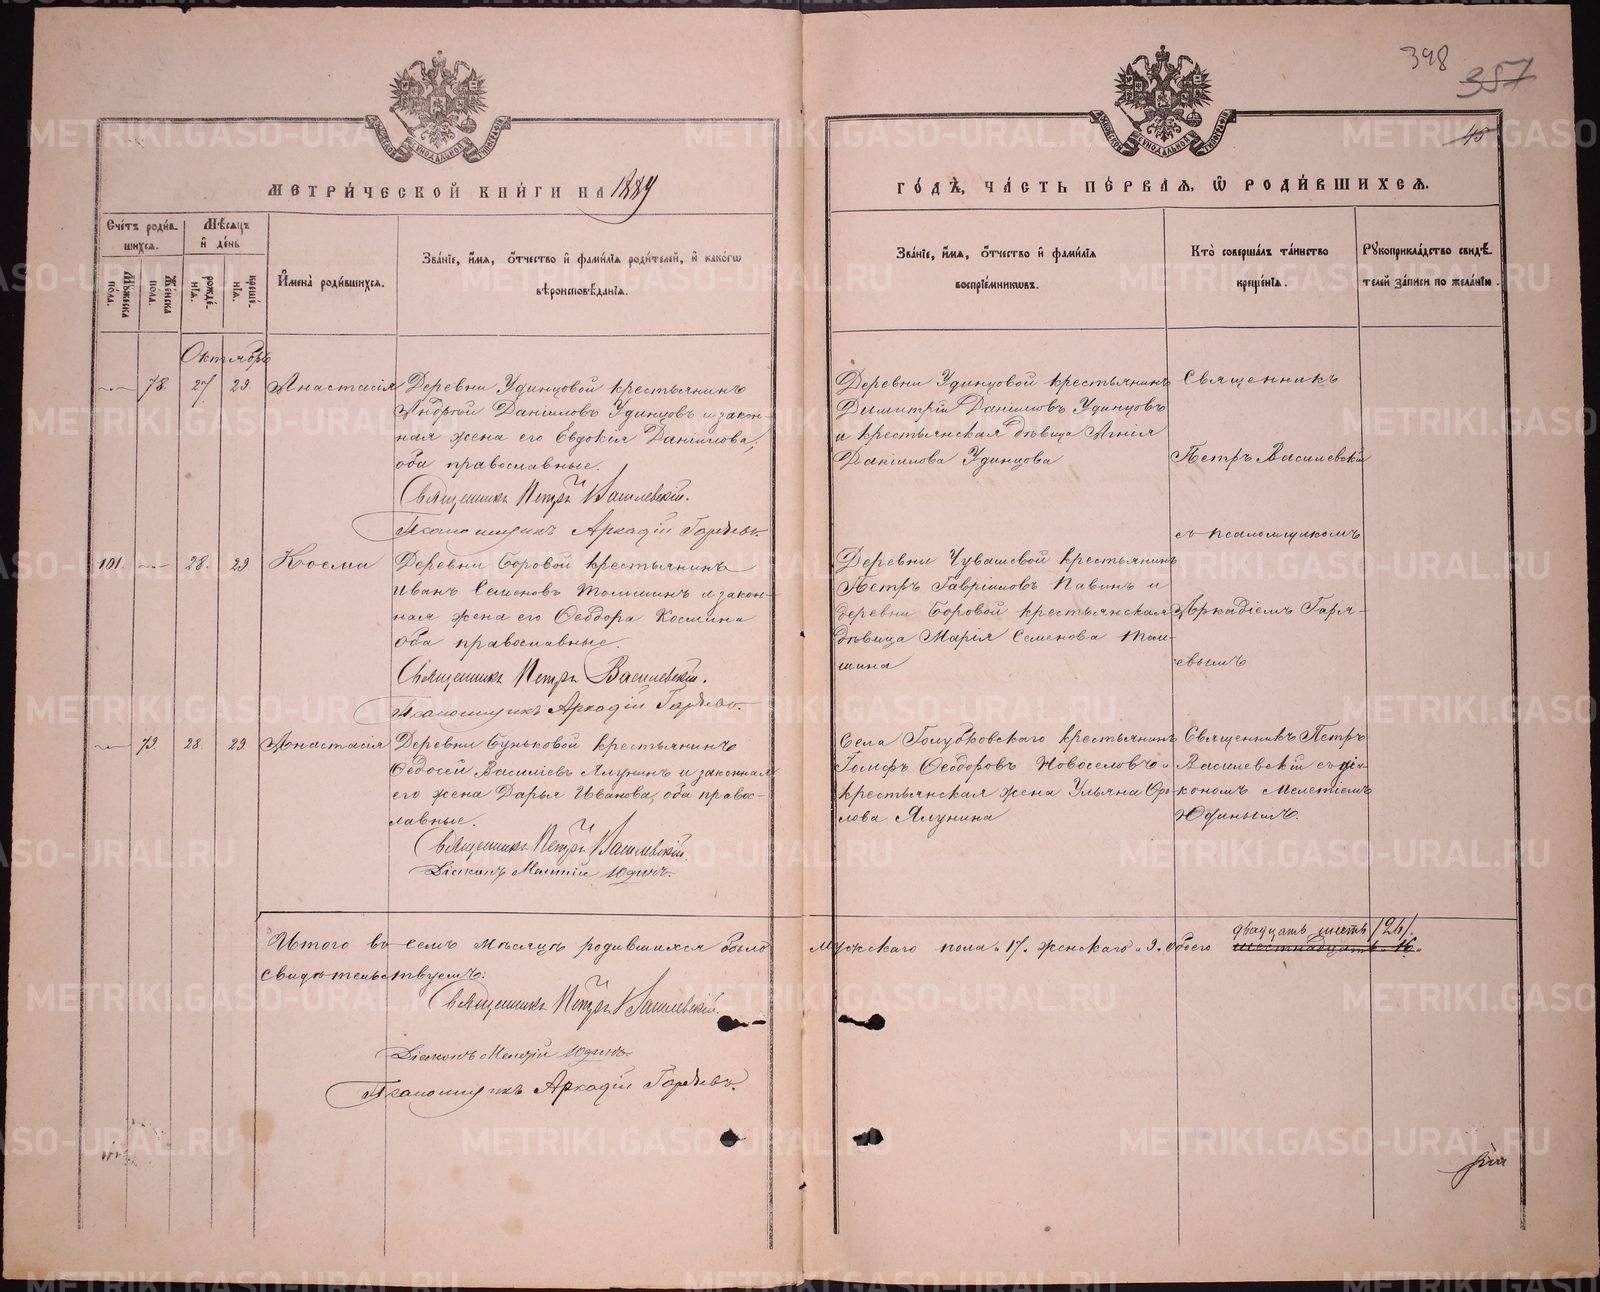 398
387
45
МЕТРИЧЕСКОЙ КНИГИ НА 1889
ГОДЪ, ЧАСТЬ ПЕРВАЯ, Ѡ РОДИВШИХСЯ.
Счетъ родившихся.
Мужеска пола.
Женска пола.
Мѣсяцъ и день
рожденія.
крещенія.
Имена родившихся.
Званіе, имя, отчество и фамилія родителей, и какогѡ
вѣроисповѣданія.
Званіе, имя, отчество и фамилія
воспріемниковъ.
Кто совершалъ таинство
крещенія.
Рукоприкладство свидѣтелей записи по желанію.
Октябрь
78. 27 29 Анастасія
Деревни Удинцовой крестьянинъ
Андрей Даніиловъ Удинцовъ и закон-
ная жена его Евдокія Даніилова,
оба православные.
Священникъ Петръ Василевскій.
Псаломщикъ Аркадій Гаряевъ.
Деревни Удинцовой крестьянинъ
Димитрій Даніиловъ Удинцовъ
и крестьянская дѣвица Агнія
Даніилова Удинцова
Священникъ
Петръ Василевскій
съ псаломщикомъ
Аркадіемъ Гаря-
евымъ
101. 28. 29 Косма
Деревни Боровой крестьянинъ
Иванъ Семеновъ Томшинъ и закон-
ная жена его Ѳеодора Космина
оба православные.
Священникъ Петръ Василевскій.
Псаломщикъ Аркадій Гаряевъ.
Деревни Чувашевой крестьянинъ
Петръ Гавріиловъ Павинъ и
деревни Боровой крестьянская
дѣвица Марія Семенова Том-
шина
79. 28. 29 Анастасія
Деревни Буньковой крестьянинъ
Ѳеодосій Василіевъ Ялунинъ и законная
его жена Дарья Иванова, оба право-
славные.
Священникъ Петръ Василевскій.
Діаконъ Мелетій Юдинъ.
Села Голубковскаго крестьянинъ
Ѳеодоровъ Новоселовъ и
крестьянская жена Ульяна
Ялунина
Священникъ Петръ
Василевскій съ діа-
кономъ Мелетіемъ
Юдинымъ.
Итого въ семъ мѣсяцѣ родившихся было
Мужскаго пола 17. женскаго 9. обоего шестнадцать 16.
двадцать шесть /26/.
свидѣтельствуемъ:
Священникъ Петръ Василевскій.
Діаконъ Мелетій Юдинъ.
Псаломщикъ Аркадій Гаряевъ.
METRIKI.GASO-URAL.RU